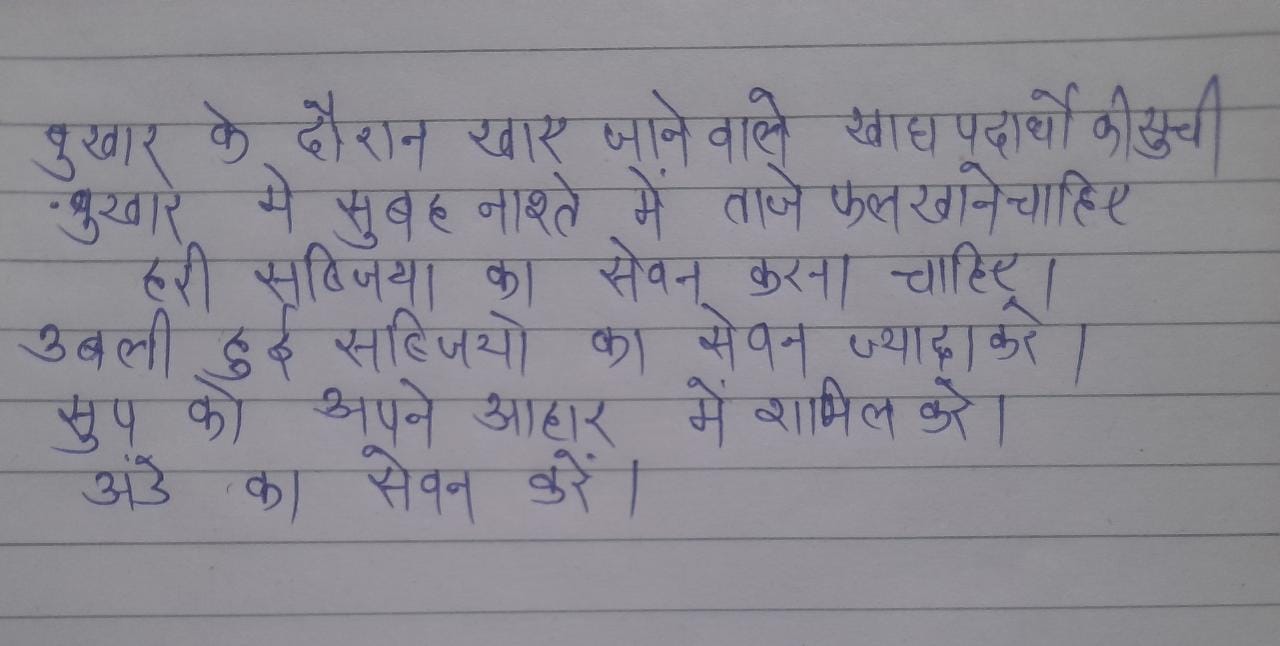 बुखार के दौरान खाए जाने वाले खाद्य पदार्थो की सुची
बुखार मे सुबह नाश्ते में ताजे फल खाने चाहिए
हरी सब्जिया का सेवन करना चाहिए।
उबली हुई सब्जियो का सेवन ज्यादा करे।
सुप को अपने आहार में शामिल करे।
अंडे का सेवन करें।